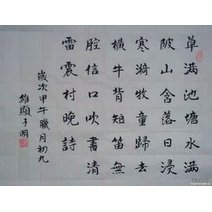 草满池塘水满
陂山含落日浸
寒漪牧童歸去
横牛背短笛無
腔信口吹書清
雷震村晚詩
歲次甲午臘月初九